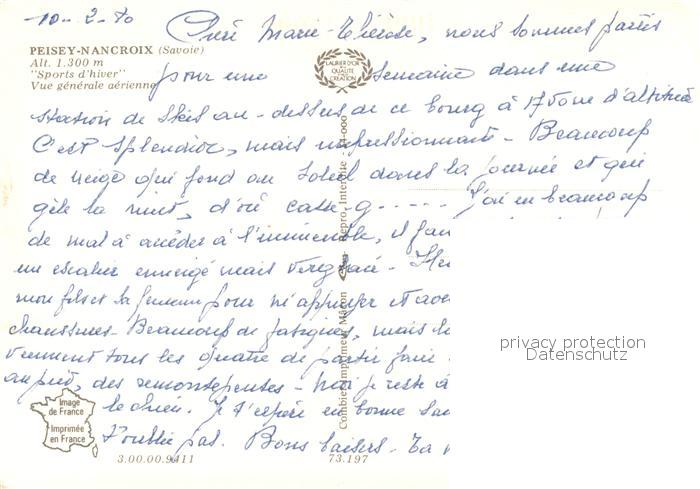 10-2-80 Chère Marie-Thérèse, nous sommes partis
PEISEY-NANCROIX (Savoie)
Alt. 1.300 m
"Sports d'hiver"
Vue générale aérienne
LAURIER D'OR
DE LA
QUALITÉ
CRÉATION
pour une semaine dans une
station de skis au-dessus de ce bourg à 1750m d'altitude
C'est splendide, mais impressionnant - Beaucoup
de neige qui fond au soleil dans la journée et qui
gèle la nuit, d'où casse-g----- J'ai eu beaucoup
de mal à accéder à l'immeuble, il fau
un escalier enneigé mais verglacé -
mon fils et sa femme pour m'appuyer et avoi
chaussures - Beaucoup de fatigues, mais le
viennent tous les quatre de partir faire
au pied, des remontepentes - Moi je reste à
le chien. Je t'espère en bonne san
T'oublie pas. Bons baisers - Ta
Combier imprimeur Mâcon
Repro. Interdite
Image
de France
Imprimée
en France
3.00.00.9411
73.197
privacy protection
Datenschutz